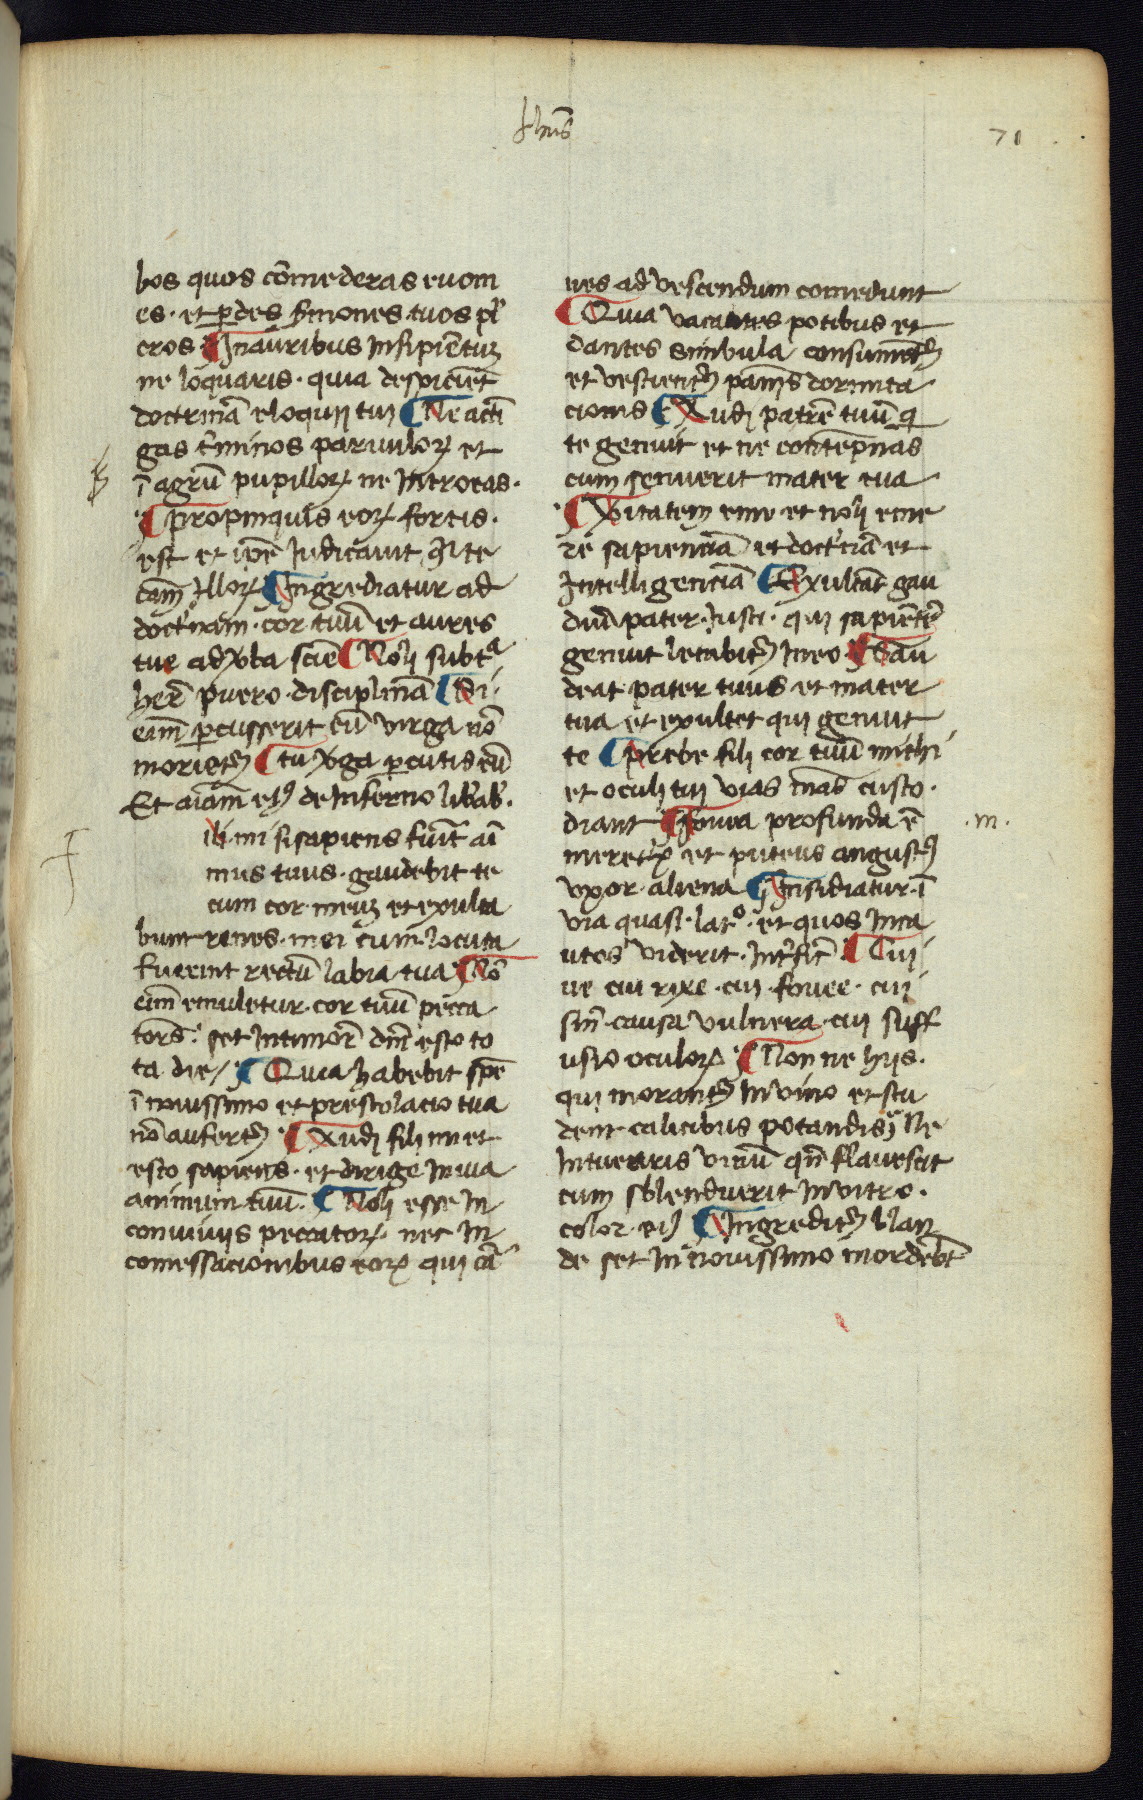 Jhus
71
bos quos cōmederas euom
es · et ꝑdes ẜmones tuos pl̄
cros ¶ Jn auribus insipiētuꝫ
ne loquaris · quia despiciēt
doctrinā eloquij tuj ¶ Ne acti
gas t̄minos paruulorꝝ et
ī agrū pupillorꝝ ne introeas ·
¶ Propinquus eorꝝ fortis ·
est et ip̄e iudicauit in te
cām illorꝝ ¶ Ingrediatur ad
doct͛nam · cor tuū et aures
tue ad v̄ba sciē ¶ Nolj subtᵃ
herē puero · disciplinā ¶ Si ·
eīm ꝑcusserit eū virga nō
morietꝰ ¶ tu v̄ga ꝑcutis eū
Et aīam eiꝰ de inferno lib̄ab ·
ili mi si sapiens fuīt ai
mus tuus · gaudebit te
cum cor · meuꝫ et exulta
bunt renes · mei cum · locuta
fuerint rectū labia tua ¶ Nō
eīm emuletur · cor tuū pecca
tors̄ · set in timorē dn̄i esto to
ta die / ¶ Quia habebit spē
ī nouissimo et prestolacio tua
nō aufertꝰ ¶ Audj filj mi et
esto sapiens · et dirige in uia
animum tuū · ¶ Nolj esse in
conuiuijs peccatorꝝ · nec in
comessacionibus eorꝝ quj cā
nes ad vescendum comedunt
¶ Quia vacantes potibus et
dantes simbula consumētꝰ
et vestientꝰ pān̄is dormita
cionis ¶ Audj patrē tuū q
te genuit et ne contēpnas
cum senuerit mater tua
¶ Veritatem eme et nolj eme
re sapienciā et doct͛iā et
intelligenciā ¶ Exultāt gau
diū pater · iusti · quj sapiētē
genuit letabitꝰ in eo ¶ Gau
deat pater tuus et mater
tua et exultet quj genuit
te ¶ Prebe filj cor tuū mithi
et oculj tuj vias meas custo ·
diant ¶ Fouea profunda ē · m ·
meret͛x et puteus angustꝰ
vxor aliena ¶ Insidiatur · ī
via quasi · latᵒ · et quos inca
utos viderit · int͛ficꝫ ¶ Cuj
ve cui rixe · cuj · fouee · cuj
sin̄ causa vulnera · cuj suff
usio oculorꝝ ¶ Non ne hijs ·
quj morantꝰ in vino et stu
dent calicibus potandis ¶ Ne
intuearis vinū qn̄ flauescit
cum splenduerit in vitro ·
color · eiꝰ ¶ Ingreditꝰ blan
de set in nouissimo mordebt̄